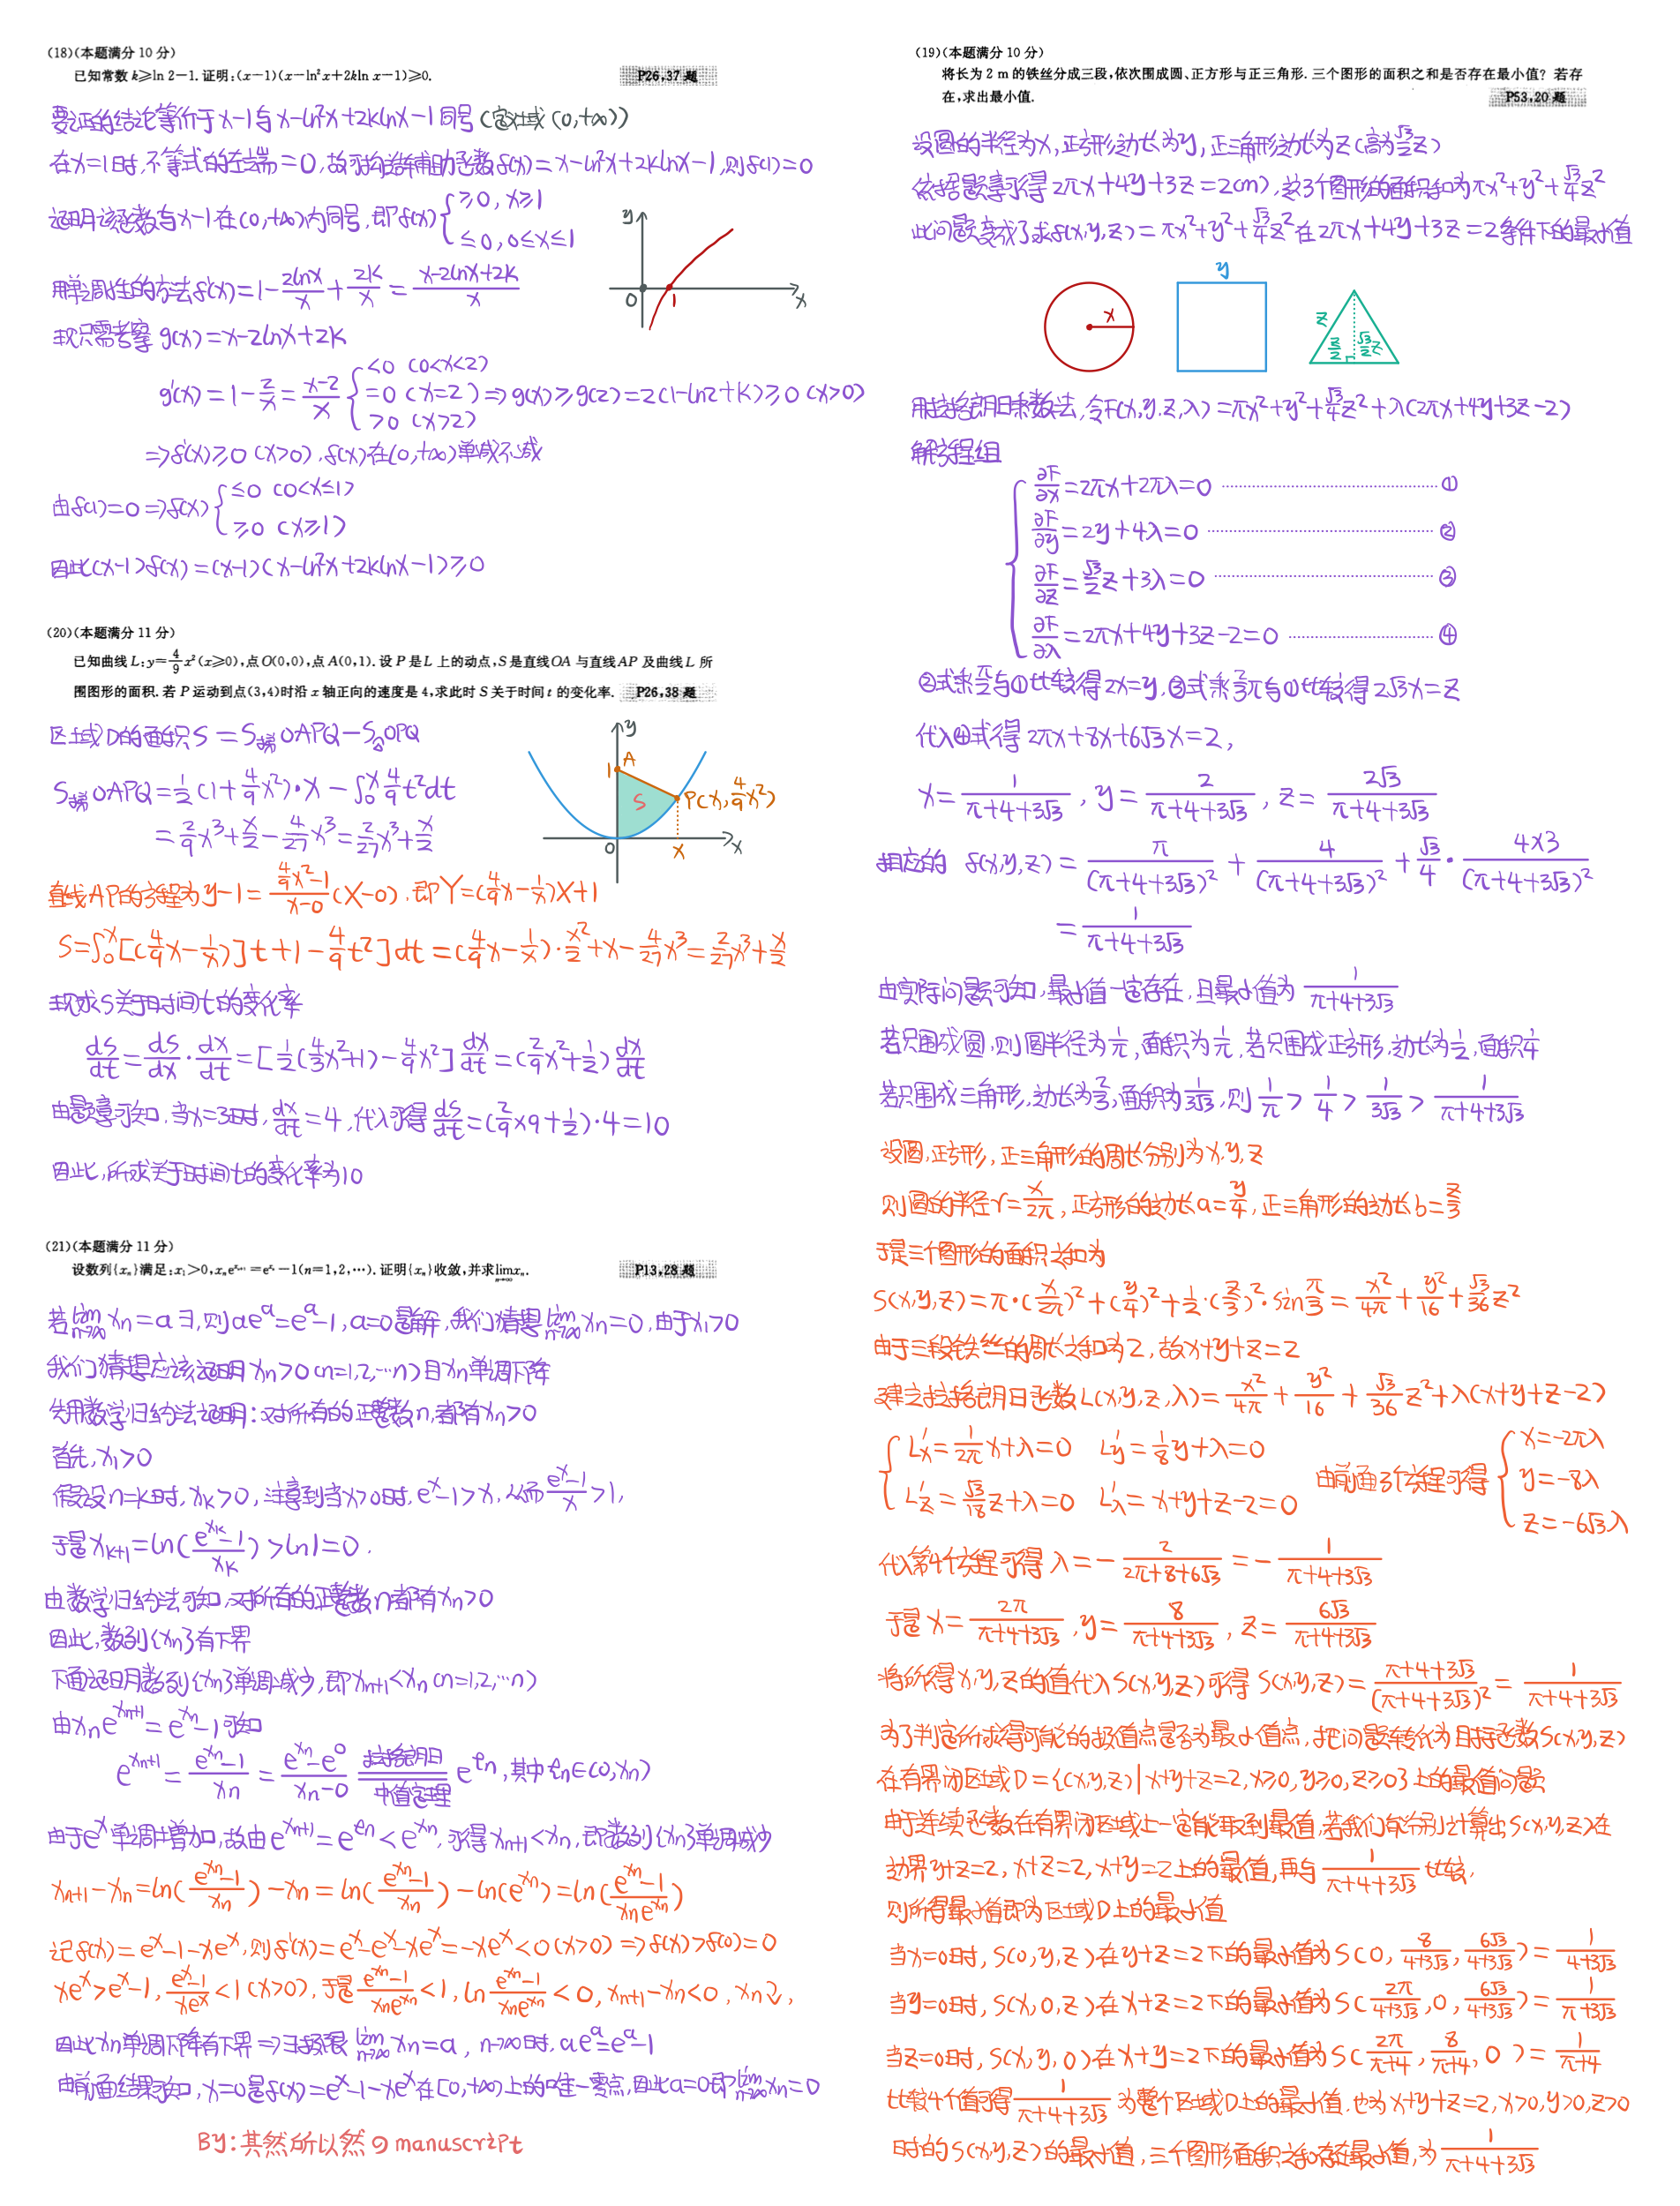 (18)(本题满分 10 分)
已知常数 k≥ln 2−1. 证明:(x−1)(x−ln²x+2kln x−1)≥0.
P26,37 题
要证的结论等价于x−1与x−ln²x+2klnx−1同号(定义域(0,+∞))
在x=1时,不等式的左端=0,故可构造辅助函数f(x)=x−ln²x+2klnx−1,则f(1)=0
证明该函数与x−1在(0,+∞)内同号,即f(x){≥0, x≥1
≤0, 0≤x≤1
y
0
1
x
用单调性的方法f'(x)=1−2lnx/x+2k/x=(x−2lnx+2k)/x
我只需考察 g(x)=x−2lnx+2k
g'(x)=1−2/x=(x−2)/x {<0 (0<x<2)
=0 (x=2) ⇒ g(x)≥g(2)=2(1−ln2+k)≥0 (x>0)
>0 (x>2)
⇒f'(x)≥0 (x>0),f(x)在(0,+∞)单减不减
由f(1)=0⇒f(x){≤0 (0<x≤1)
≥0 (x≥1)
因此(x−1)f(x)=(x−1)(x−ln²x+2klnx−1)≥0
(20)(本题满分 11 分)
已知曲线 L:y=4/9 x²(x≥0),点 O(0,0),点 A(0,1). 设 P 是 L 上的动点,S 是直线 OA 与直线 AP 及曲线 L 所
围图形的面积. 若 P 运动到点(3,4)时沿 x 轴正向的速度是 4,求此时 S 关于时间 t 的变化率.
P26,38 题
区域D的面积S=S梯OAPQ−S△OPQ
S梯OAPQ=1/2(1+4/9x²)·x−∫₀ˣ4/9t²dt
=2/9x³+x/2−4/27x³=2/27x³+x/2
y
A
1
S
P(x,4/9x²)
0
x
x
直线AP的方程为y−1=(4/9x²−1)/(x−0)(X−0),即Y=(4/9x−1/x)X+1
S=∫₀ˣ[(4/9x−1/x)]t+1−4/9t²]dt=(4/9x−1/x)·x²/2+x−4/27x³=2/27x³+x/2
我求S关于时间t的变化率
dS/dt=dS/dx·dx/dt=[1/2(4/3x²+1)−4/9x²]dx/dt=(2/9x²+1/2)dx/dt
由题意可知,当x=3时,dx/dt=4,代入可得dS/dt=(2/9×9+1/2)·4=10
因此,所求关于时间t的变化率为10
(21)(本题满分 11 分)
设数列{xₙ}满足:x₁>0,xₙe^(xₙ₊₁)=e^(xₙ)−1(n=1,2,⋯). 证明{xₙ}收敛,并求lim(n→∞)xₙ.
P13,28 题
若lim(n→∞)xn=a∃,则ae^a=e^a−1,a=0是解,我们猜想lim(n→∞)xn=0,由于x₁>0
我们猜想应该证明xn>0(n=1,2,⋯n)且xn单调下降
先用数学归纳法证明:对所有的正整数n,都有xn>0
首先,x₁>0
假设n=k时,xk>0,注意到当x>0时,e^x−1>x,从而(e^x−1)/x>1,
于是xk+1=ln((e^xk−1)/xk)>ln1=0.
由数学归纳法可知,对所有的正整数n都有xn>0
因此,数列{xn}有下界
下面证明数列{xn}单调减少,即xn+1<xn(n=1,2,⋯n)
由xne^(xn+1)=e^(xn)−1可知
e^(xn+1)=(e^xn−1)/xn=(e^xn−e⁰)/(xn−0) 拉格朗日 中值定理 e^ξn,其中ξn∈(0,xn)
由于e^x单调增加,故由e^(xn+1)=e^ξn<e^xn,可得xn+1<xn,即数列{xn}单调减少
xn+1−xn=ln((e^xn−1)/xn)−xn=ln((e^xn−1)/xn)−ln(e^xn)=ln((e^xn−1)/(xne^xn))
记f(x)=e^x−1−xe^x,则f'(x)=e^x−e^x−xe^x=−xe^x<0(x>0)⇒f(x)>f(0)=0
xe^x>e^x−1,(e^x−1)/(xe^x)<1(x>0),于是(e^xn−1)/(xne^xn)<1,ln(e^xn−1)/(xne^xn)<0,xn+1−xn<0,xn↓,
因此xn单调下降有下界⇒∃极限lim(n→∞)xn=a, n→∞时,ae^a=e^a−1
由前面结果可知,x=0是f(x)=e^x−1−xe^x在[0,+∞)上的唯一零点,因此a=0即lim(n→∞)xn=0
By:其然所以然のmanuscript
(19)(本题满分 10 分)
将长为 2 m 的铁丝分成三段,依次围成圆、正方形与正三角形. 三个图形的面积之和是否存在最小值? 若存
在,求出最小值.
P53,20 题
设圆的半径为x,正方形边长为y,正三角形边长为z(高为√3/2z)
依据题意可得2πx+4y+3z=2(m),这3个图形的面积和为πx²+y²+√3/4z²
此问题变成了求f(x,y,z)=πx²+y²+√3/4z²在2πx+4y+3z=2条件下的最小值
x
y
z
z/2
√3/2z
用拉格朗日乘数法,令F(x,y,z,λ)=πx²+y²+√3/4z²+λ(2πx+4y+3z−2)
解方程组
∂F/∂x=2πx+2πλ=0 ①
∂F/∂y=2y+4λ=0 ②
∂F/∂z=√3/2z+3λ=0 ③
∂F/∂λ=2πx+4y+3z−2=0 ④
②式乘π/2与①比较得2x=y,③式乘2/3π与①比较得2√3x=z
代入④式得2πx+8x+6√3x=2,
x=1/(π+4+3√3),y=2/(π+4+3√3),z=2√3/(π+4+3√3)
相应的 f(x,y,z)=π/(π+4+3√3)²+4/(π+4+3√3)²+√3/4·4×3/(π+4+3√3)²
=1/(π+4+3√3)
由实际问题可知,最小值一定存在,且最小值为1/(π+4+3√3)
若只围成圆,则圆半径为1/π,面积为1/π,若只围成正方形,边长为1/2,面积1/4
若只围成三角形,边长为2/3,面积为1/3√3,则1/π>1/4>1/3√3>1/(π+4+3√3)
设圆,正方形,正三角形的周长分别为x,y,z
则圆的半径r=x/2π,正方形的边长a=y/4,正三角形的边长b=z/3
于是三个图形的面积之和为
S(x,y,z)=π·(x/2π)²+(y/4)²+1/2·(z/3)²·sinπ/3=x²/4π+y²/16+√3/36z²
由于三段铁丝的周长之和为2,故x+y+z=2
建立拉格朗日函数L(x,y,z,λ)=x²/4π+y²/16+√3/36z²+λ(x+y+z−2)
L'x=1/2πx+λ=0 L'y=1/8y+λ=0
L'z=√3/18z+λ=0 L'λ=x+y+z−2=0
由前面3个方程可得{x=−2πλ
y=−8λ
z=−6√3λ
代入第4个方程可得λ=−2/(2π+8+6√3)=−1/(π+4+3√3)
于是x=2π/(π+4+3√3),y=8/(π+4+3√3),z=6√3/(π+4+3√3)
将所得x,y,z的值代入S(x,y,z)可得S(x,y,z)=(π+4+3√3)/(π+4+3√3)²=1/(π+4+3√3)
为了判定所求得可能的极值点是否为最小值点,把问题转化为目标函数S(x,y,z)
在有界闭区域D={(x,y,z)|x+y+z=2,x≥0,y≥0,z≥0}上的最值问题
由于连续函数在有界闭区域上一定能取到最值,若我们能分别计算出S(x,y,z)在
边界y+z=2,x+z=2,x+y=2上的最值,再与1/(π+4+3√3)比较,
则所得最小值即为区域D上的最小值
当x=0时,S(0,y,z)在y+z=2下的最小值为S(0,8/(4+3√3),6√3/(4+3√3))=1/(4+3√3)
当y=0时,S(x,0,z)在x+z=2下的最小值为S(2π/(4+3√3),0,6√3/(4+3√3))=1/(π+3√3)
当z=0时,S(x,y,0)在x+y=2下的最小值为S(2π/(π+4),8/(π+4),0)=1/(π+4)
比较4个值可得1/(π+4+3√3)为整个区域D上的最小值,也为x+y+z=2,x>0,y>0,z>0
时的S(x,y,z)的最小值,三个图形面积之和存在最小值,为1/(π+4+3√3)